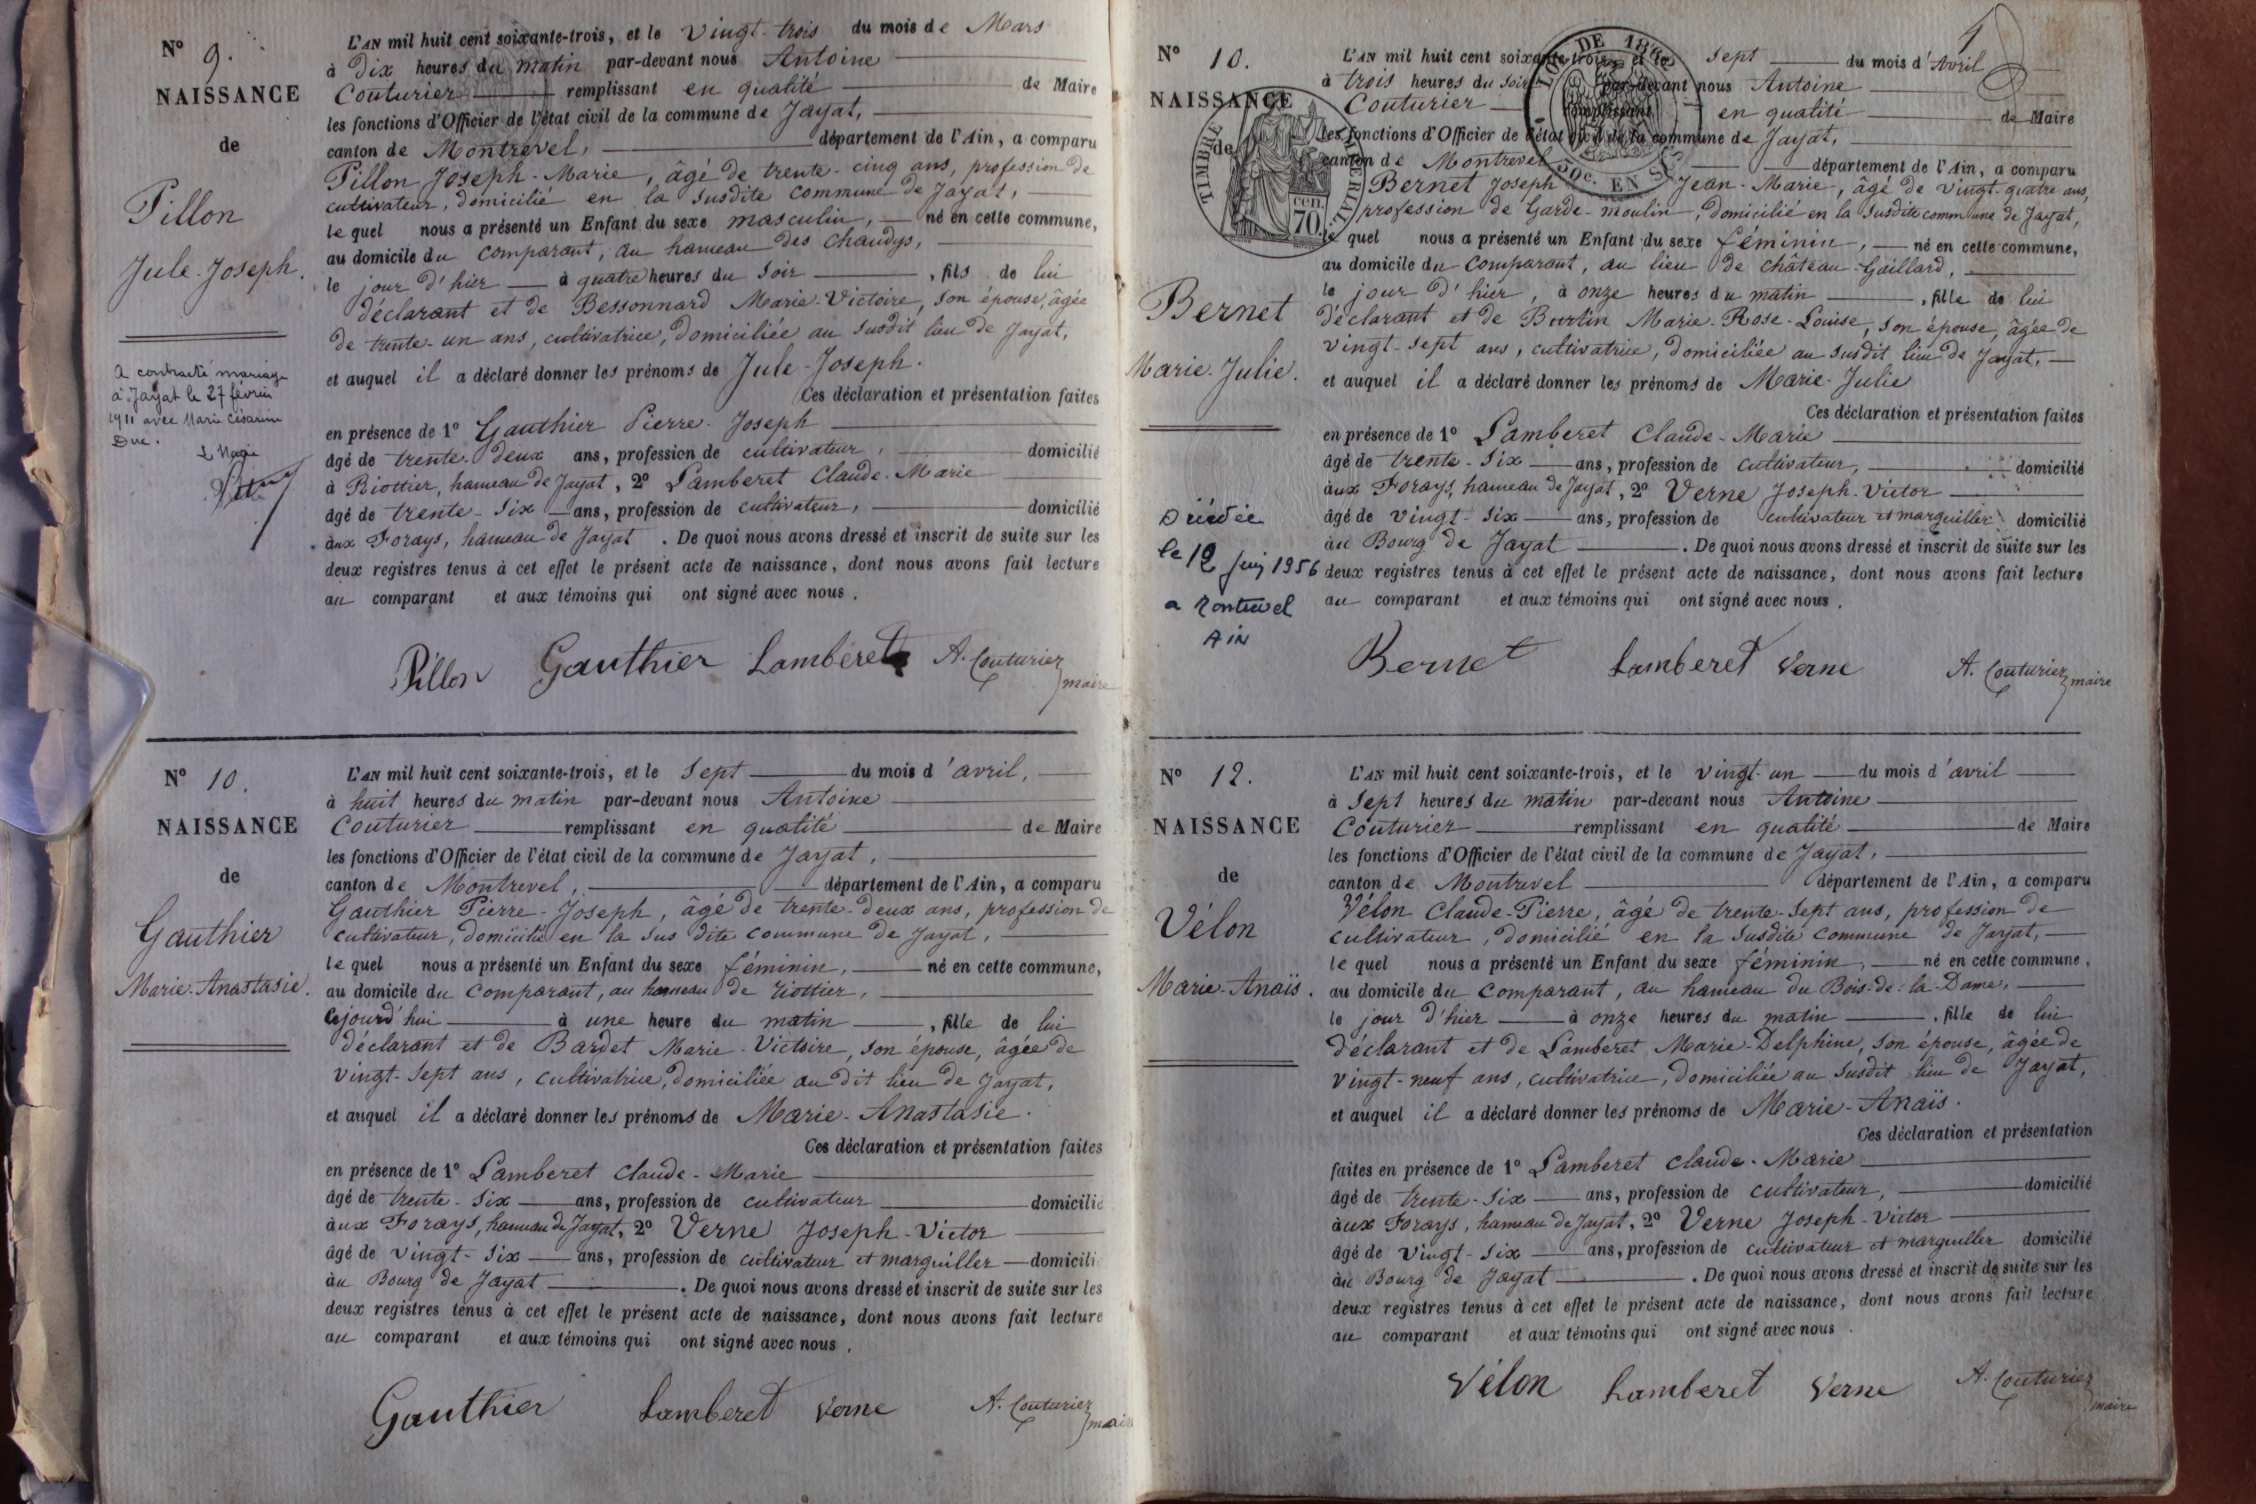 N° 9.
NAISSANCE
de
Pillon
Jule-Joseph.
a contracté mariage
à Jayat le 27 février
1911 avec Marie Césarine
Duc.
L'AN mil huit cent soixante-trois, et le vingt-trois du mois de Mars
à dix heures du matin par-devant nous Antoine
Couturier remplissant en qualité de Maire
les fonctions d'Officier de l'état civil de la commune de Jayat,
canton de Montrevel, département de l'Ain, a comparu
Pillon Joseph-Marie, âgé de trente-cinq ans, profession de
cultivateur, domicilié en la susdite commune de Jayat,
le quel nous a présenté un Enfant du sexe masculin, né en cette commune,
au domicile du comparant, au hameau des chaudys,
le jour d'hier à quatre heures du soir, fils de lui
déclarant et de Bessonnard Marie-Victoire, son épouse, âgée
de trente-un ans, cultivatrice, domiciliée au susdit lieu de Jayat,
et auquel il a déclaré donner les prénoms de Jule-Joseph.
Ces déclaration et présentation faites
en présence de 1° Gauthier Pierre-Joseph
âgé de trente-deux ans, profession de cultivateur, domicilié
à Riottier, hameau de Jayat, 2° Lamberet Claude-Marie
âgé de trente-six ans, profession de cultivateur, domicilié
aux Forays, hameau de Jayat. De quoi nous avons dressé et inscrit de suite sur les
deux registres tenus à cet effet le présent acte de naissance, dont nous avons fait lecture
au comparant et aux témoins qui ont signé avec nous.
Pillon Gauthier Lamberet A. Couturier
maire
N° 10.
NAISSANCE
de
Gauthier
Marie-Anastasie.
L'AN mil huit cent soixante-trois, et le sept du mois d'avril,
à huit heures du matin par-devant nous Antoine
Couturier remplissant en qualité de Maire
les fonctions d'Officier de l'état civil de la commune de Jayat,
canton de Montrevel, département de l'Ain, a comparu
Gauthier Pierre-Joseph, âgé de trente-deux ans, profession de
cultivateur, domicilié en la sus dite commune de Jayat,
le quel nous a présenté un Enfant du sexe féminin, né en cette commune,
au domicile du comparant, au hameau de riottier,
cejourd'hui à une heure du matin, fille de lui
déclarant et de Bardet Marie-Victoire, son épouse, âgée de
vingt-sept ans, cultivatrice, domiciliée au dit lieu de Jayat,
et auquel il a déclaré donner les prénoms de Marie-Anastasie.
Ces déclaration et présentation faites
en présence de 1° Lamberet Claude-Marie
âgé de trente-six ans, profession de cultivateur domicilié
aux Forays, hameau de Jayat, 2° Verne Joseph-Victor
âgé de vingt-six ans, profession de cultivateur et marguiller domicili
au Bourg de Jayat. De quoi nous avons dressé et inscrit de suite sur les
deux registres tenus à cet effet le présent acte de naissance, dont nous avons fait lecture
au comparant et aux témoins qui ont signé avec nous.
Gauthier Lamberet Verne A. Couturier
maire
N° 10.
NAISSANCE
de
Bernet
Marie-Julie.
Décédée
le 12 juin 1956
a Montrevel
Ain
TIMBRE IMPÉRIAL
cen. 70
LOI DE 186
50c. EN SUS
L'AN mil huit cent soixante-trois, et le sept du mois d'Avril
à trois heures du soir par-devant nous Antoine
Couturier remplissant en qualité de Maire
les fonctions d'Officier de l'état civil de la commune de Jayat,
canton de Montrevel département de l'Ain, a comparu
Bernet Joseph Jean-Marie, âgé de vingt-quatre ans,
profession de Garde-moulin, domicilié en la susdite commune de Jayat,
le quel nous a présenté un Enfant du sexe féminin, né en cette commune,
au domicile du comparant, au lieu de château-Gaillard,
le jour d'hier, à onze heures du matin, fille de lui
déclarant et de Burtin Marie-Rose-Louise, son épouse, âgée de
vingt-sept ans, cultivatrice, domiciliée au susdit lieu de Jayat,
et auquel il a déclaré donner les prénoms de Marie-Julie
Ces déclaration et présentation faites
en présence de 1° Lamberet Claude-Marie
âgé de trente-six ans, profession de cultivateur, domicilié
aux Forays, hameau de Jayat, 2° Verne Joseph-Victor
âgé de vingt-six ans, profession de cultivateur et marguiller domicilié
au Bourg de Jayat. De quoi nous avons dressé et inscrit de suite sur les
deux registres tenus à cet effet le présent acte de naissance, dont nous avons fait lecture
au comparant et aux témoins qui ont signé avec nous.
Bernet Lamberet Verne A. Couturier
maire
N° 12.
NAISSANCE
de
Vélon
Marie-Anaïs.
L'AN mil huit cent soixante-trois, et le vingt-un du mois d'avril
à sept heures du matin par-devant nous Antoine
Couturier remplissant en qualité de Maire
les fonctions d'Officier de l'état civil de la commune de Jayat,
canton de Montrevel département de l'Ain, a comparu
Vélon Claude-Pierre, âgé de trente-sept ans, profession de
cultivateur, domicilié en la susdite commune de Jayat,
le quel nous a présenté un Enfant du sexe féminin, né en cette commune,
au domicile du comparant, au hameau du Bois-de-la-Dame,
le jour d'hier à onze heures du matin, fille de lui
déclarant et de Lamberet Marie-Delphine, son épouse, âgée de
vingt-neuf ans, cultivatrice, domiciliée au susdit lieu de Jayat,
et auquel il a déclaré donner les prénoms de Marie-Anaïs.
Ces déclaration et présentation
faites en présence de 1° Lamberet Claude-Marie
âgé de trente-six ans, profession de cultivateur, domicilié
aux Forays, hameau de Jayat, 2° Verne Joseph-Victor
âgé de vingt-six ans, profession de cultivateur et marguiller domicilié
au Bourg de Jayat. De quoi nous avons dressé et inscrit de suite sur les
deux registres tenus à cet effet le présent acte de naissance, dont nous avons fait lecture
au comparant et aux témoins qui ont signé avec nous.
Vélon Lamberet Verne A. Couturier
maire